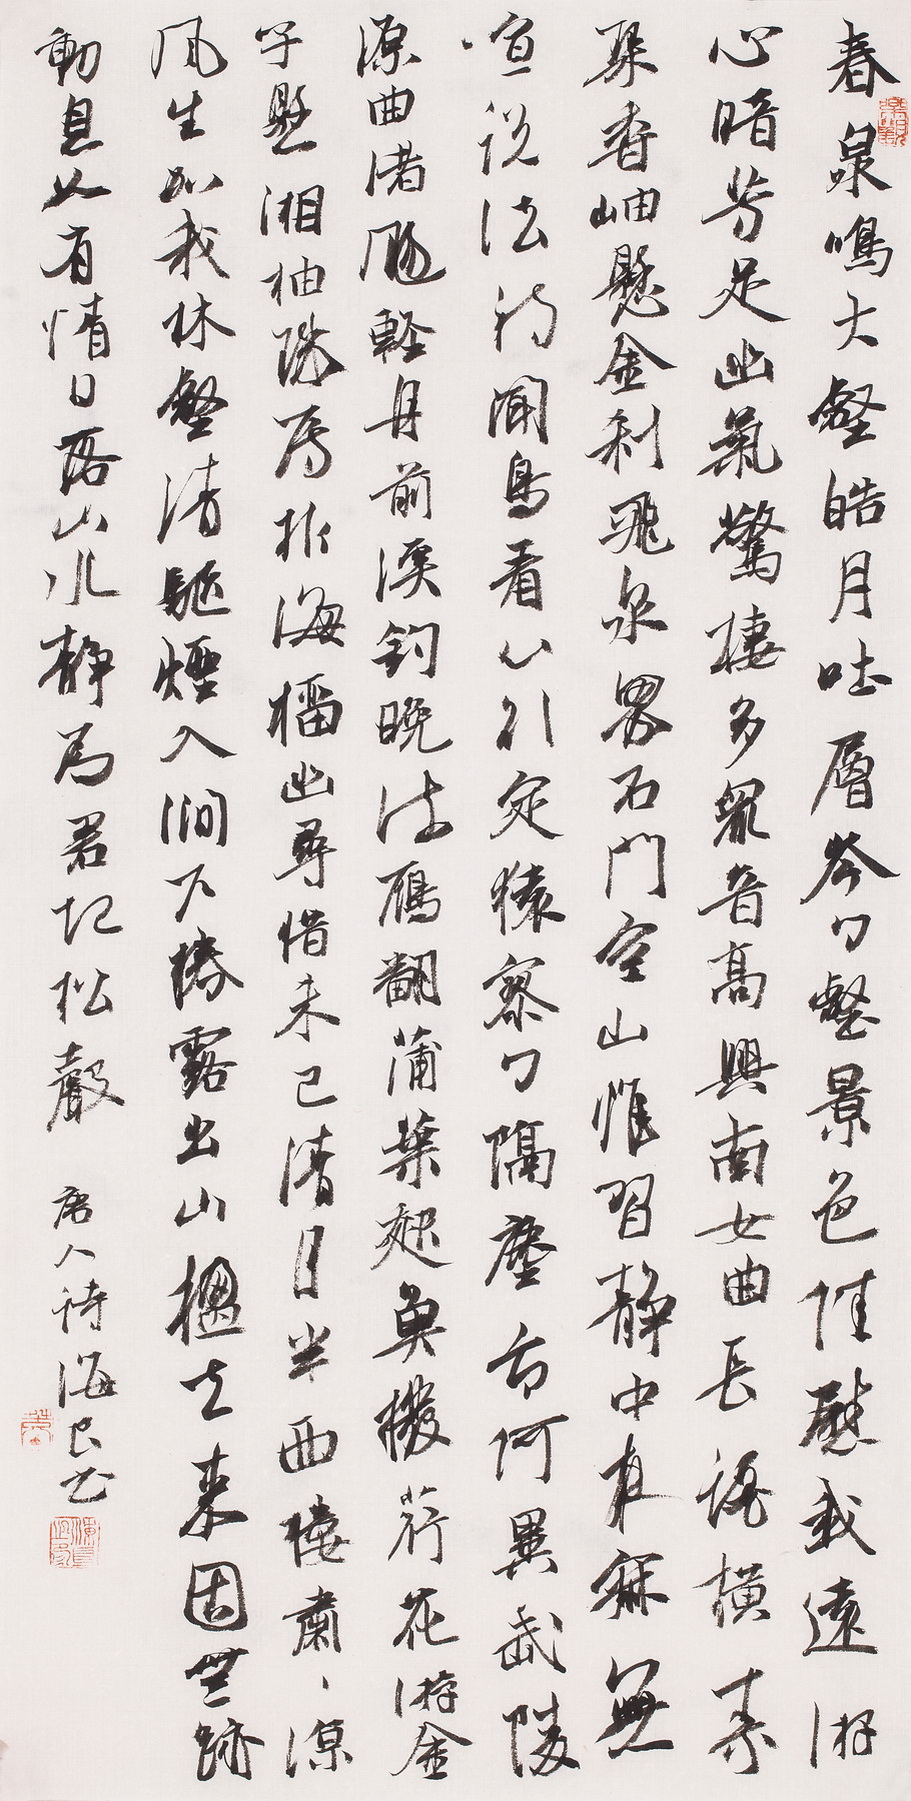 春泉鳴大壑皓月吐層岑〻壑景色佳慰我遠游
心暗芳足幽氣驚棲多衆音高興南山曲長謠橫素
琴香岫懸金刹飛泉界石門空山惟習靜中夜寂無
喧説法初聞鳥看心欲定猿寥〻隔塵市何異武陵
源曲渚颺輕舟前溪釣晚流雁翻蒲葉起魚撥荇花游金
子懸湘柚珠房折海榴幽尋惜未已清月半西樓肅〻涼
風生加我林壑清驅煙入澗户捲霧出山楹去來固無跡
動息如有情日落山水靜爲君起松聲 唐人詩海良書